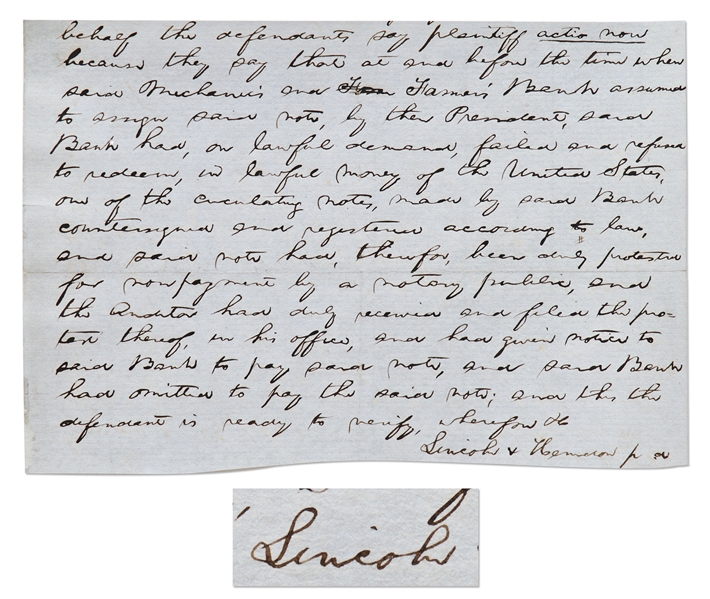 behalf the defendants say plaintiff actio now
because they say that at and before the time when
said Mechanic's and Farmers' Bank assumed
to assign said note, by their President, said
Bank had, on lawful demand, failed and refused
to redeem, in lawful money of the United States,
one of the circulating notes, made by said Bank
countersigned and registered according to law,
and said note had, therefor, been duly protested
for nonpayment by a notary public, and
the Auditor had duly received and filed the pro=
test thereof, in his office, and had given notice to
said Bank to pay said note, and said Bank
had omitted to pay the said note; and this the
defendant is ready to verify, wherefore &c
Lincoln & Herndon p d
Lincoln